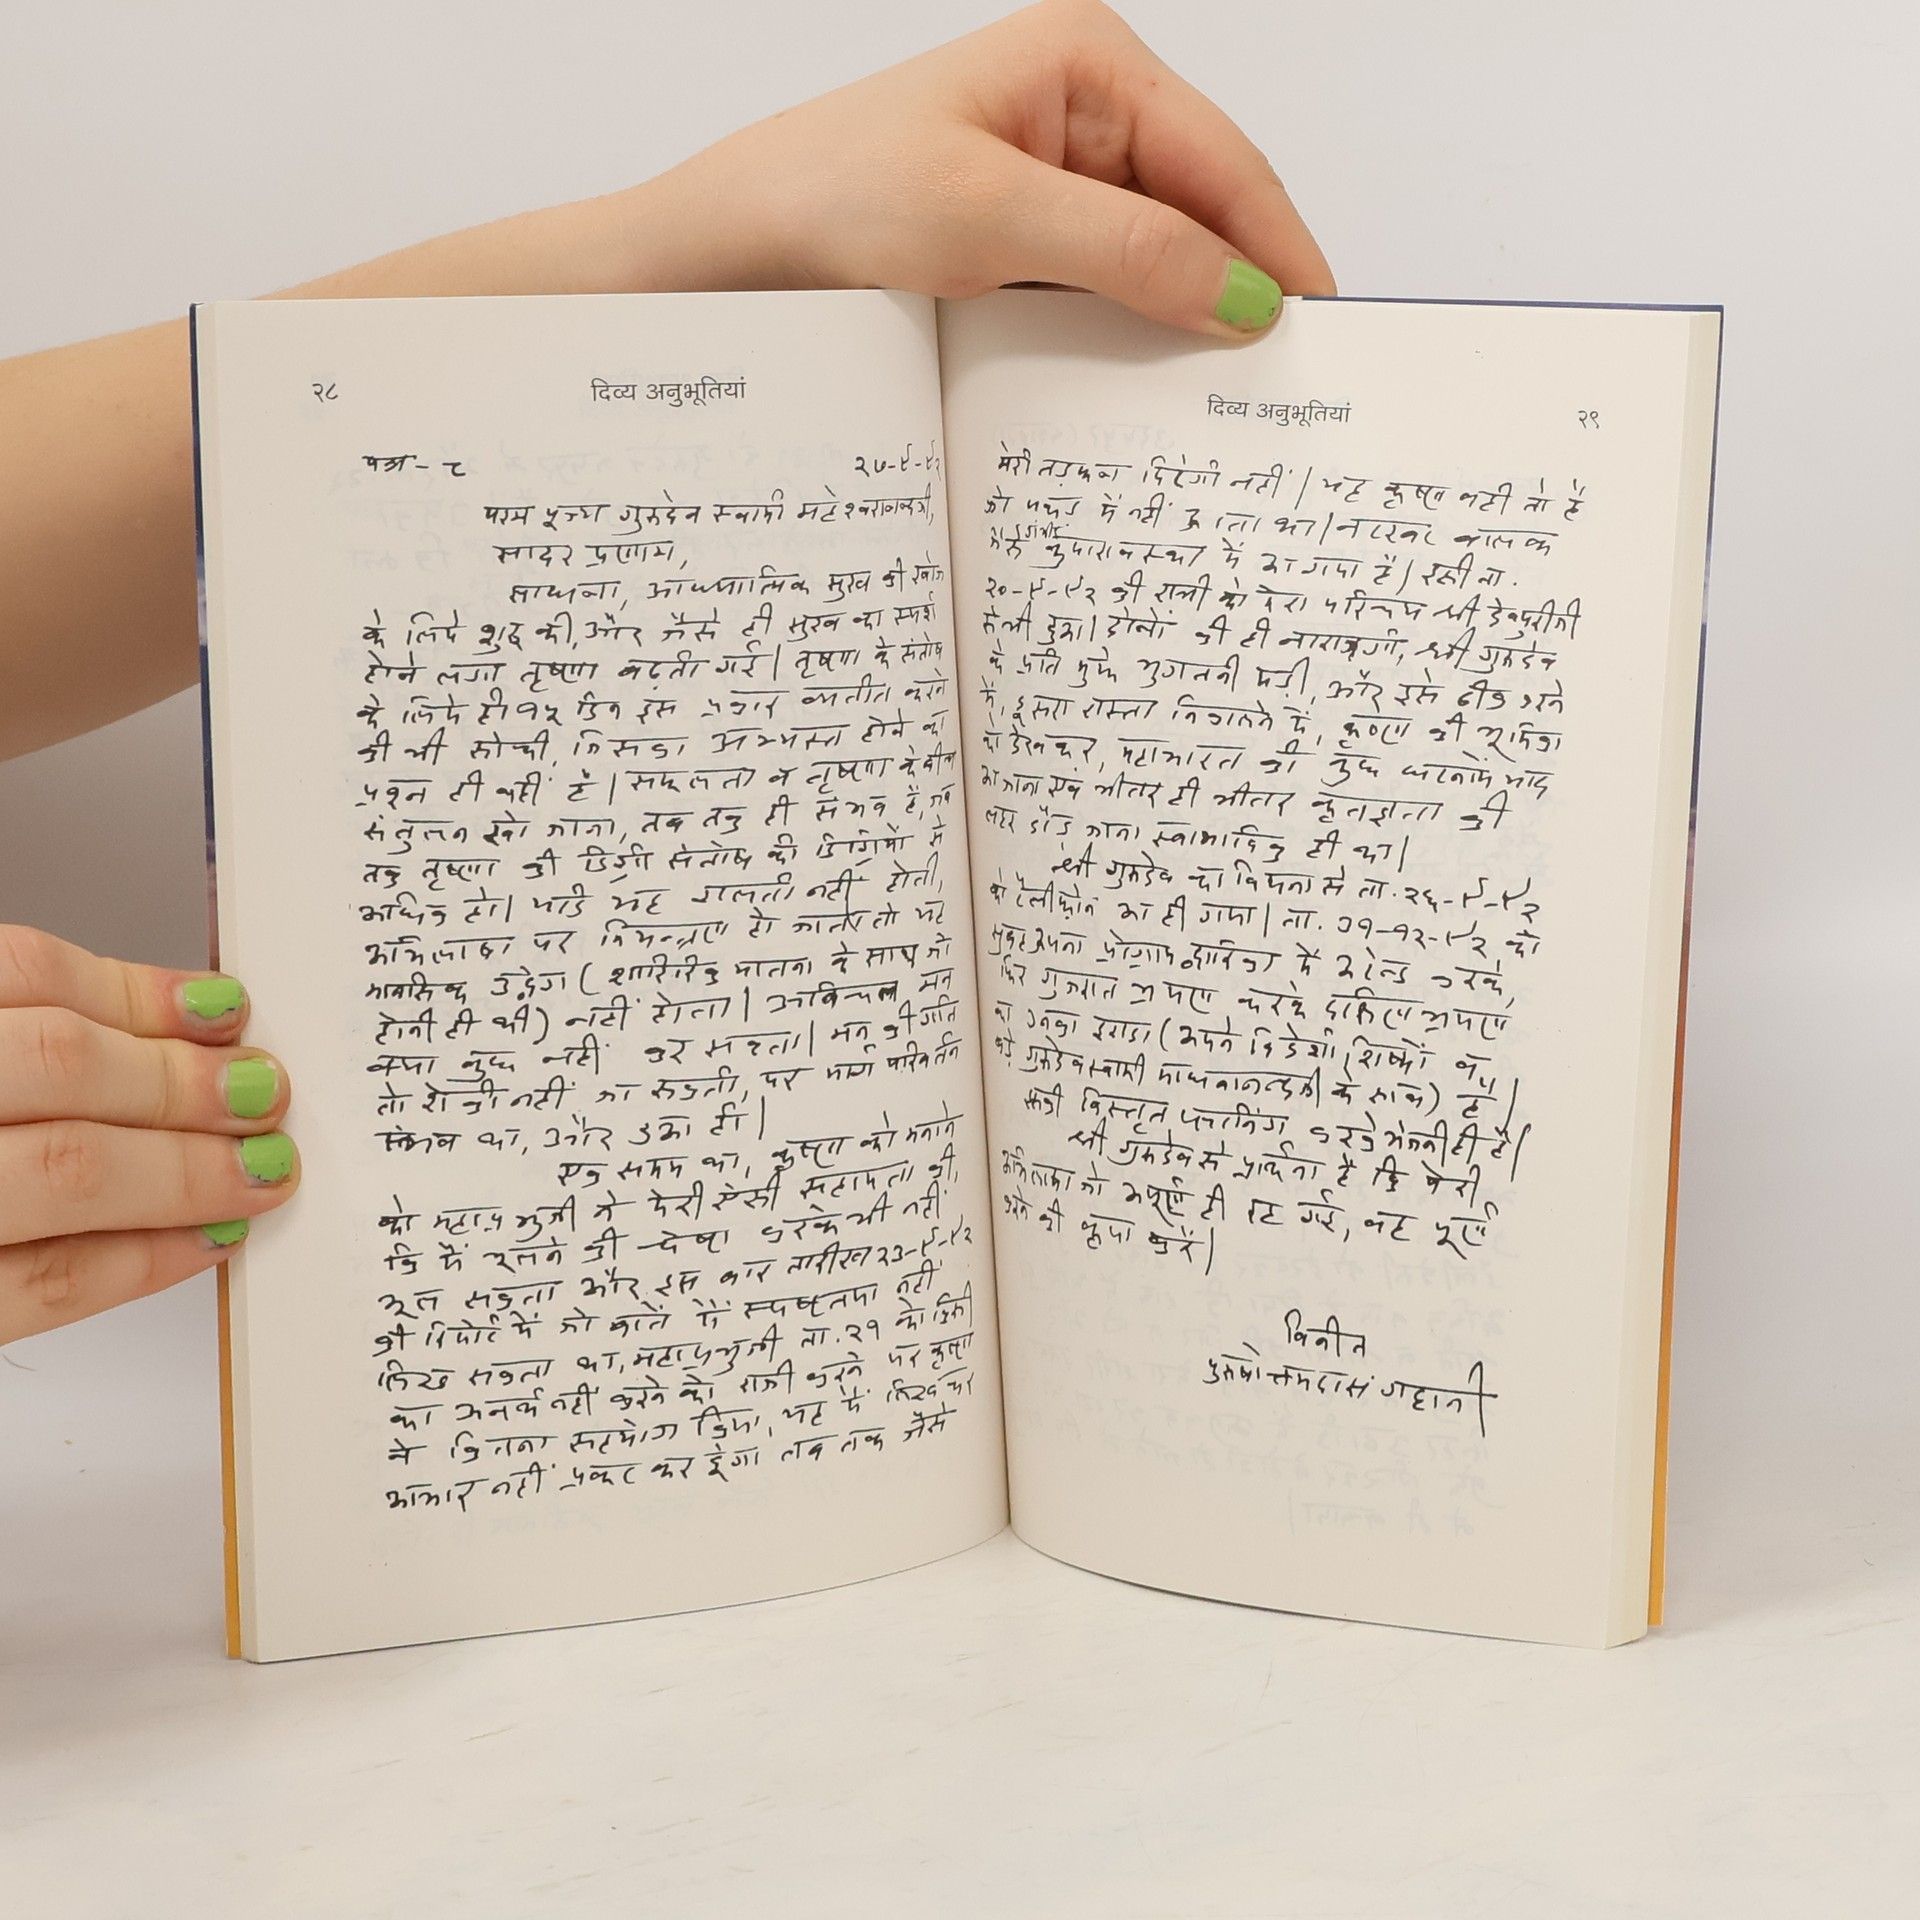 २८
दिव्य अनुभूतियां
पत्र - ८
२७-९-९२
परम पूज्य गुरुदेव स्वामी महेश्वरानन्दजी,
सादर प्रणाम,
साधना, आध्यात्मिक सुख की खोज
के लिये शुरू की, और जैसे ही सुख का स्पर्श
होने लगा तृष्णा बढ़ती गई। तृष्णा के संतोष
के लिये ही १५ दिन इस प्रकार व्यतीत करने
की भी सोची, जिसका अभ्यस्त होने का
प्रश्न ही नहीं है। सफलता व तृष्णा के बीच
संतुलन खो जाना, तब तक ही संभव है, जब
तक तृष्णा की डिग्री संतोष की डिग्रियों से
अधिक हो। यदि यह गलती नहीं होती,
अभिलाषा पर नियन्त्रण हो जाता तो यह
मानसिक उद्वेग (शारिरिक यातना के साथ जो
होनी ही थी) नहीं होता। अविचल मन
क्या कुछ नहीं कर सकता। मन की गति
तो रोकी नहीं जा सकती, पर मार्ग परिवर्तन
संभव था, और हुआ ही।
एक समय था, कृष्ण को मनाने
को महाप्रभुजी ने मेरी ऐसी सहायता की,
कि मैं भूलने की चेष्टा करके भी नहीं
भूल सकता और इस बार तारीख २३-९-९२
की रिपोर्ट में जो बातें मैं स्पष्टतया नहीं
लिख सकता था, महाप्रभुजी ता. २१ को किसी
का अनर्थ नहीं करने को राजी करने पर कृष्ण
ने कितना सहयोग दिया, यह मैं लिख कर
आभार नहीं प्रकट कर दूंगा तब तक जैसे
दिव्य अनुभूतियां
२९
मेरी तड़फन मिटेगी नहीं। यह कृष्ण वही तो है
जो पकड़ में नहीं आता था। नटखट बालक
जैसे गंभीर कुमारावस्था में आ गया है। इसी ता.
२०-९-९२ की रात्री को मेरा परिचय श्री देवपुरीजी
से भी हुआ। दोनों की ही नाराजगी, श्री गुरुदेव
के प्रति मुझे भुगतनी पड़ी, और इसे ठीक करने
में, दूसरा रास्ता निकालने में, कृष्ण की भूमिका
को देखकर, महाभारत की कुछ घटनायें याद
आ जाना एवं भीतर ही भीतर कृतज्ञता की
लहर दौड़ जाना स्वाभाविक ही था।
श्री गुरुदेव का वियना से ता. २६-९-९२
को टैलीफ़ोन आ ही गया। ता. ३१-१२-९२ को
सुबह अपना प्रोग्राम द्वारिका में अटेन्ड करके,
फिर गुजरात भ्रमण करके दक्षिण भ्रमण
का उनका इरादा (अपने विदेशी शिष्यों व
बड़े गुरुदेव स्वामी माधवानन्दजी के साथ) है।
सभी विस्तृत प्लानिंग करके भेजनी ही है।
श्री गुरुदेव से प्रार्थना है कि मेरी
अभिलाषा जो अपूर्ण ही रह गई, वह पूर्ण
करने की कृपा करें।
विनीत
पुरुषोत्तमदास गहानी